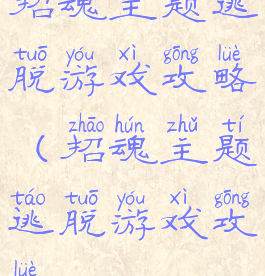 招魂主题逃
tuō yóu xì gōng lüè
脱游戏攻略
zhāo hún zhǔ tí
（招魂主题
táo tuō yóu xì gōng
逃脱游戏攻
lüè